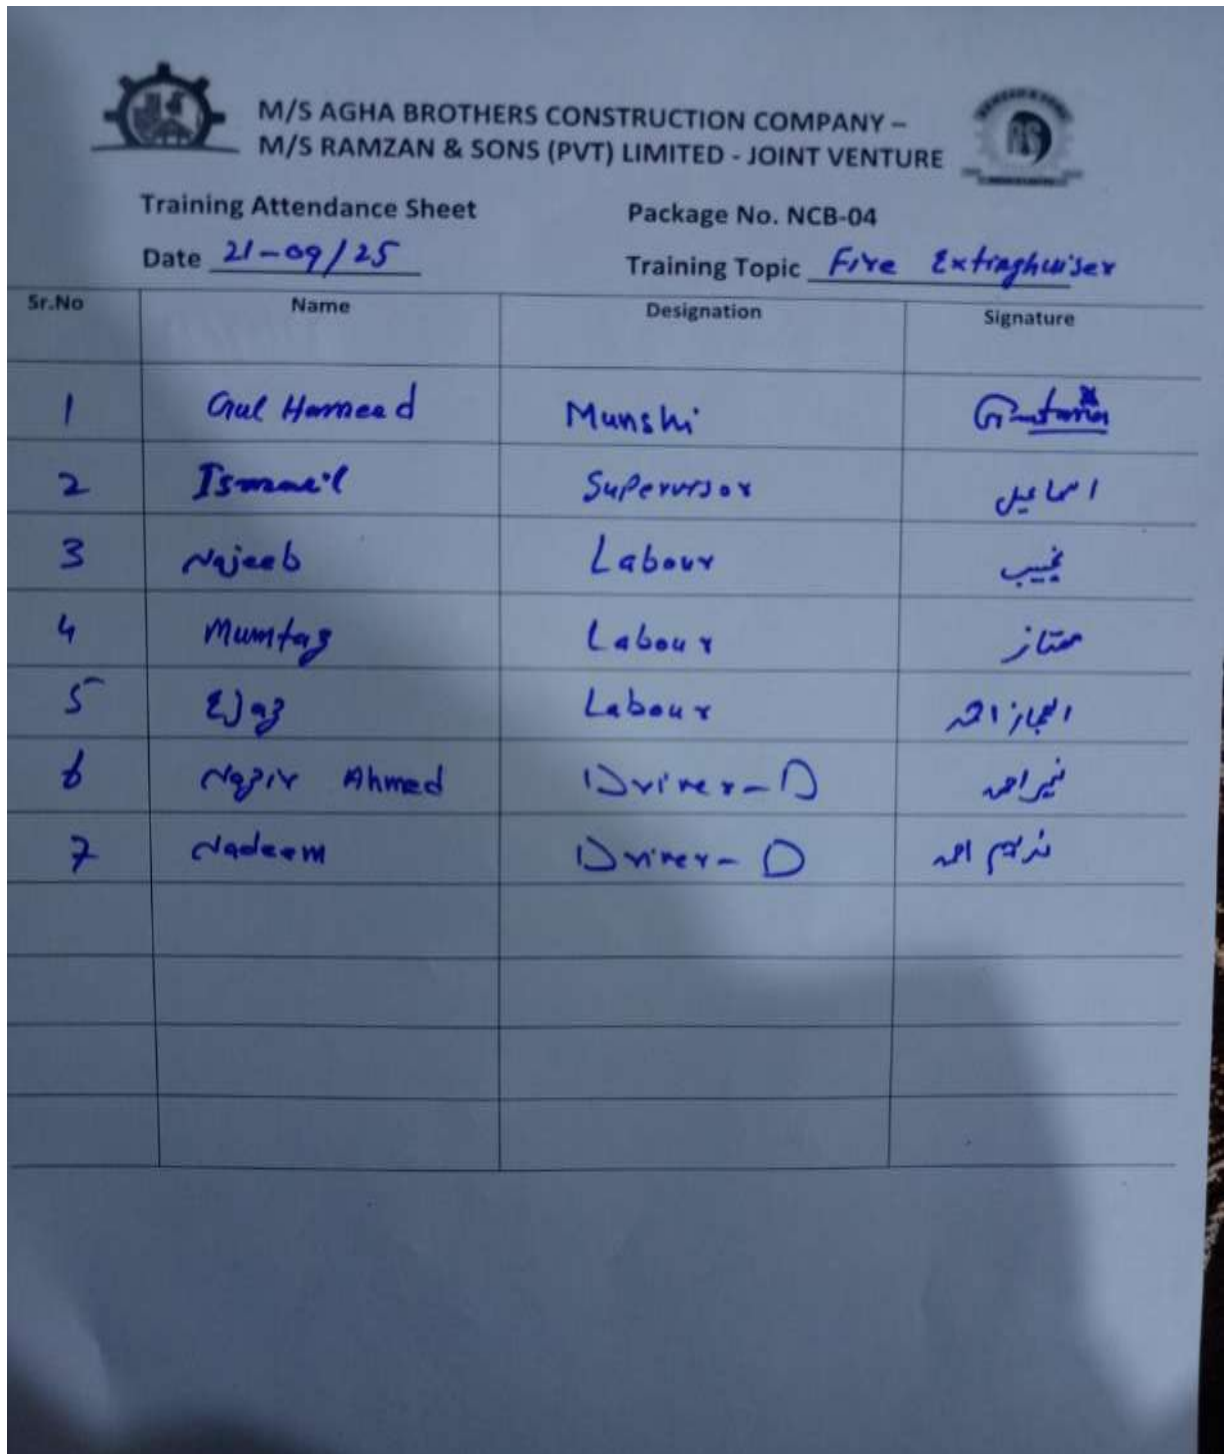 M/S AGHA BROTHERS CONSTRUCTION COMPANY –
M/S RAMZAN & SONS (PVT) LIMITED - JOINT VENTURE
Training Attendance Sheet Package No. NCB-04
Date 21-09/25 Training Topic Fire Extinghuiser
Sr.No Name Designation Signature
1 Gul Hameed Munshi
2 Ismail Supervisor اسماعیل
3 Najeeb Labour نجیب
4 Mumtaz Labour ممتاز
5 Ejaz Labour اعجاز احمد
6 Nazir Ahmed Driver-D نذیر احمد
7 Nadeem Driver-D ندیم احمد